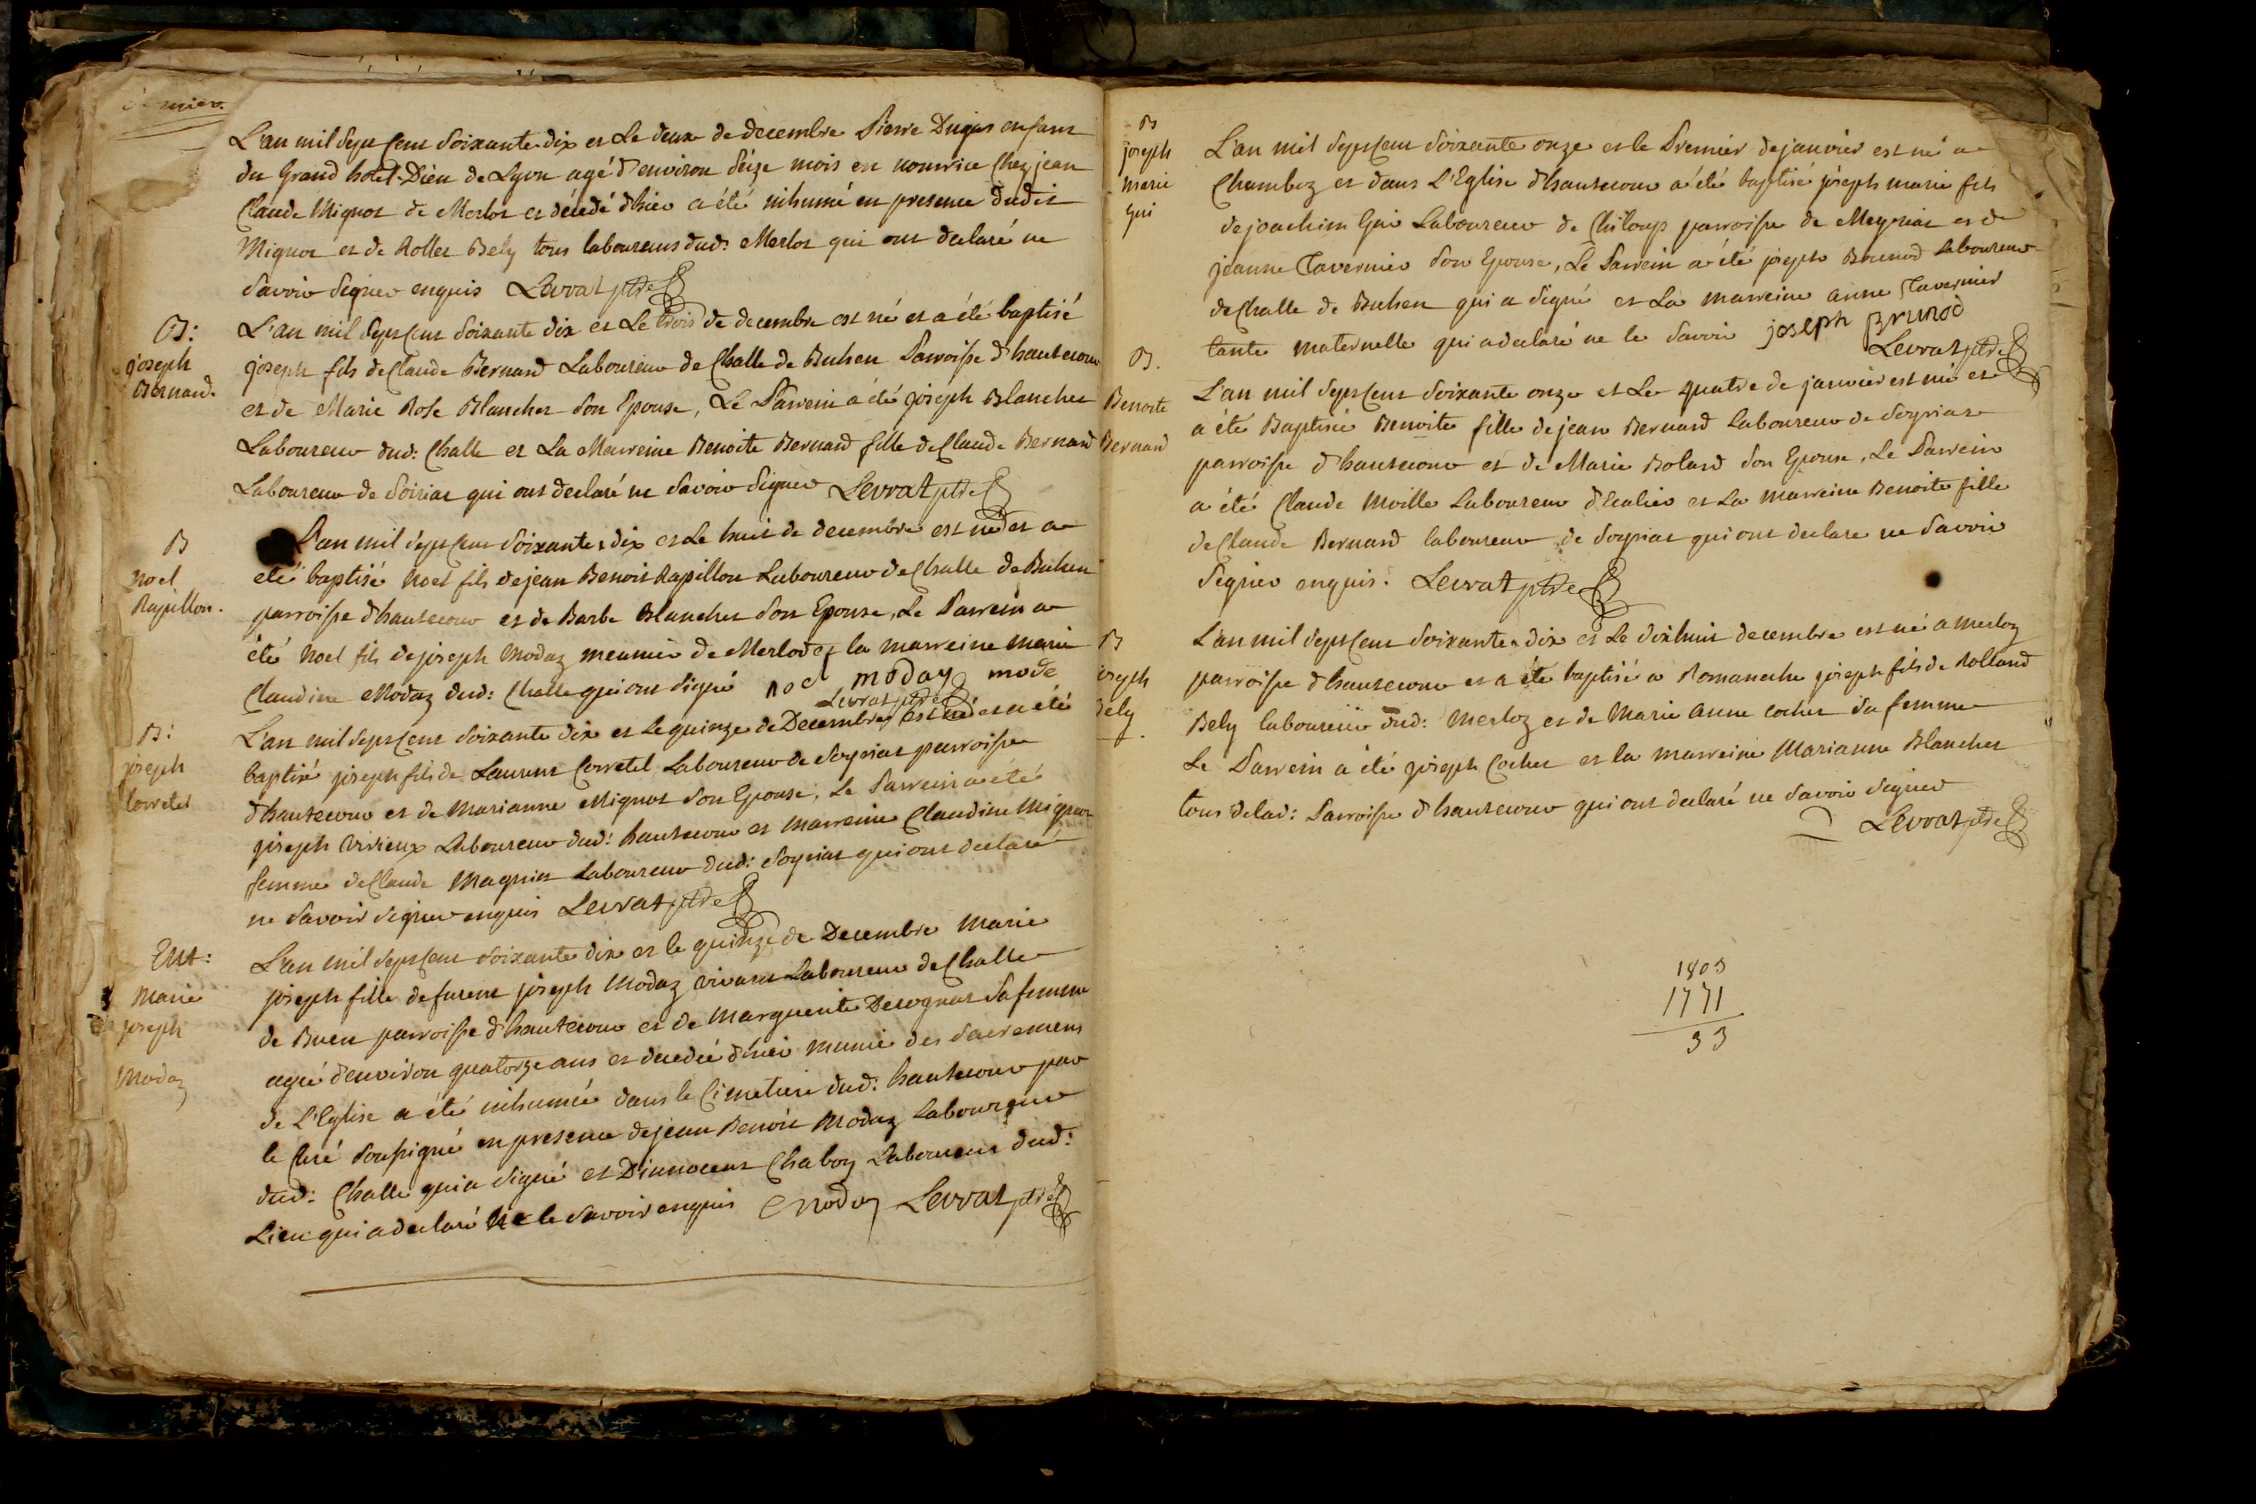 L'an mil sept Cent Soixante dix et Le deux de decembre Pierre Dugas enfant
du Grand hotel-Dieu de Lyon agé d'environ Seize mois en nourrice Chez jean
Claude Mignot de Merlot et décédé d'hier a été inhumé en presence dudit
Mignot et de Rollet Bely tous laboureurs dud: Merlot qui ont declaré ne
Savoir Signer enquis Levrat ptre
B:
joseph
Bernard.
L'an mil Sept Cent Soixante dix et Le trois de decembre est né et a été baptisé
joseph fils de Claude Bernard Laboureur de Challe de Buhen Parroisse d'hautecour
et de Marie Rose Blanchet Son Epouse, Le Parrein a été joseph Blanchet
Laboureur dud: Challe et La Marreine Benoite Bernard fille de Claude Bernard
Laboureur de Soiriat qui ont declaré ne Savoir Signer Levrat ptre
B
Noel
Rapillon.
L'an mil Sept Cent Soixante dix et Le huit de decembre est né et a
eté baptisé Noel fils de jean Benoit Rapillon Laboureur de Challe de Buhen
parroisse d'hautecour et de Barbe Blanchet Son Epouse, Le Parrein a
été Noel fils de joseph Modaz meunier de Merlod et la marreine marie
Claudine Modaz dud: Challe qui ont Signé noel moday mode
Levrat ptre
B:
joseph
Corretel
L'an mil Sept Cent Soixante dix et Le quinze de Decembre est né et a été
baptisé joseph fils de Laurent Corretel Laboureur de Soyriat parroisse
d'hautecour et de Marianne Mignot Son Epouse, Le Parrein a été
joseph Vivieux Laboureur dud: hautecour et marreine Claudine Mignot
femme de Claude Magnin Laboureur dud: Soyriat qui ont declaré
ne Savoir Signer enquis Levrat ptre
Ent:
Marie
joseph
Modaz
L'an mil Sept Cent Soixante dix et le quinze de Decembre Marie
joseph fille de furent joseph Modaz vivant Laboureur de Challe
de Buen parroisse d'hautecour et de Marguerite Decognat Sa femme
agée d'environ quatorze ans et decedée d'hier munie des Sacremens
de L'Eglise a été inhumée dans le Cimetiere dud: hautecour par
le Curé Soussigné en presence de jean Benoit Modaz Laboureur
dud: Challe qui a Signé et D'innocent Chaboy Laboureur dud:
Lieu qui a declaré Ne le Savoir enquis Moday Levrat ptre
B
joseph
marie
Gui
L'an mil Sept Cent Soixante onze et le Premier de janvier est né a
Chamboz et dans L'Eglise d'hautecour a été baptisé joseph marie fils
de joachim Gui Laboureur de Chiloup parroisse de Meyriat et de
jeanne Tavernier Son Epouse, Le Parrein a été joseph Brunod Laboureur
de Challe de Buhen qui a Signé et La marreine anne Tavernier
tante maternelle qui a declaré ne le Savoir joseph Brunod
Levrat ptre
B.
Benoite
Bernard
L'an mil Sept Cent Soixante onze et Le quatre de janvier est né et
a été Baptisée Benoite fille de jean Bernard Laboureur de Soyriat
parroisse d'hautecour et de Marie Bolard Son Epouse, Le Parrein
a été Claude Moille Laboureur d'Ecalier et La marreine Benoite fille
de Claude Bernard laboureur de Soyriat qui ont declare ne Savoir
Signer enquis. Levrat ptre
B
joseph
Bely
L'an mil Sept Cent Soixante dix et Le dixhuit decembre est né a merloz
parroisse d'hautecour et a été baptisé a Romaneche joseph fils de Rolland
Bely laboureur dud: merloz et de Marie anne Cochet Sa femme
Le Parrein a été joseph Cochet et la marreine Marianne Blanchet
tous delad: Parroisse d'hautecour qui ont declaré ne Savoir Signer
Levrat ptre
1803
1771
33